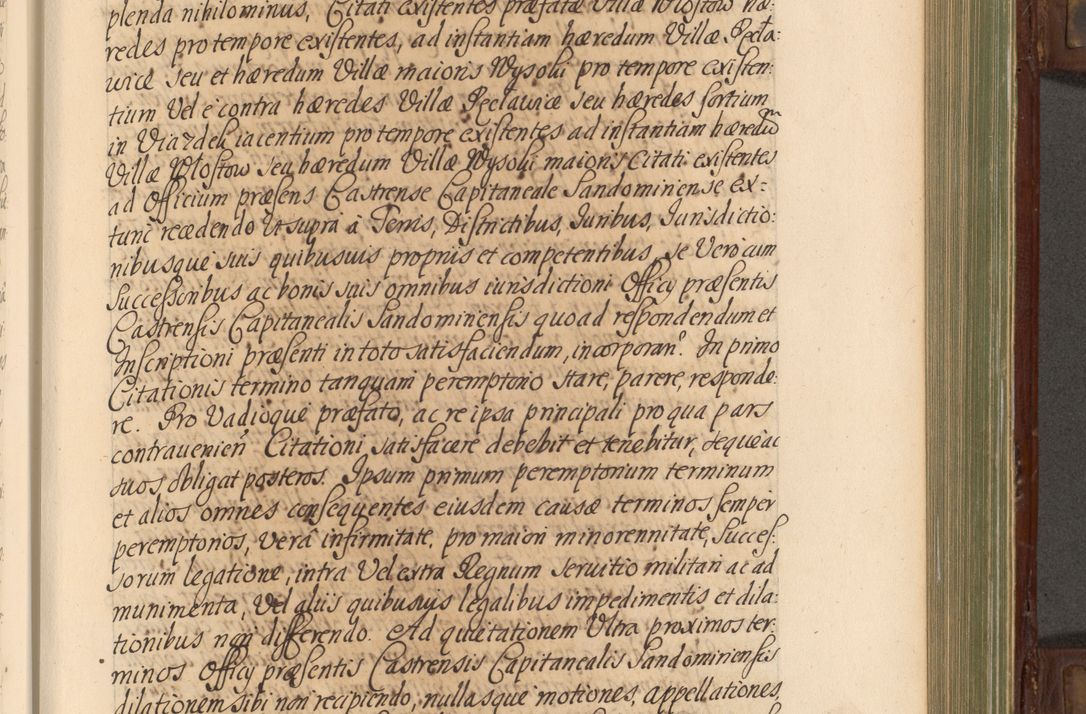 plenda nihilominus, Citati existentes præfatæ Villæ Wlostow hæ-
redes pro tempore existentes, ad instantiam hæredum Villæ Recla:
wice seu et hæredum Villæ maioris Wysoki pro tempore existen-
tium Vel e contra hæredes Villæ Reclawice seu hæredes sortium
in Via7deli iacentium pro tempore existentes ad instantiam hæredũm
Villæ Wlostow seu hæredum Villæ Wysoki maioris Citati existentes
ad Officium præsens Castrense Capitaneale Sandominense ex=
tunc recedendo Ut supra à Terris, Districtibus, Iuribus, Iurisdictio:
nibusque suis quibusuis proprijs et competentibus, se Vero cum
Successoribus ac bonis suis omnibus iurisdictioni Officij præsentis
Castrensis Capitanealis Sandominensis quoad respondendum et
Inscriptioni præsenti in toto satisfaciendum, incorporan?. In primo
Citationis termino tanquam peremptorio stare, parere, responde:
re. Pro Vadioque præfato, ac re ipsa principali pro qua pars
contravenien̄ Citationi satisfacere debebit et tenebitur, seque ac
suos obligat posteros. Ipsum primum peremptorium terminum
et alios omnes consequentes eiusdem causæ terminos semper
peremptorios, Verâ infirmitate, pro maiori minorennitate, Succes:
sorum legatione, intra Vel extra Regnum seruitio militari ac ad
munimenta, Vel alijs quibusuis legalibus impedimentis et dila:
tionibus non differendo. Ad quietationem Ultra proximos ter:
minos Officij præsentis Castrensis Capitanealis Sandominensis
dilationem sibi non recipiendo, nullasque motiones, appellationes,